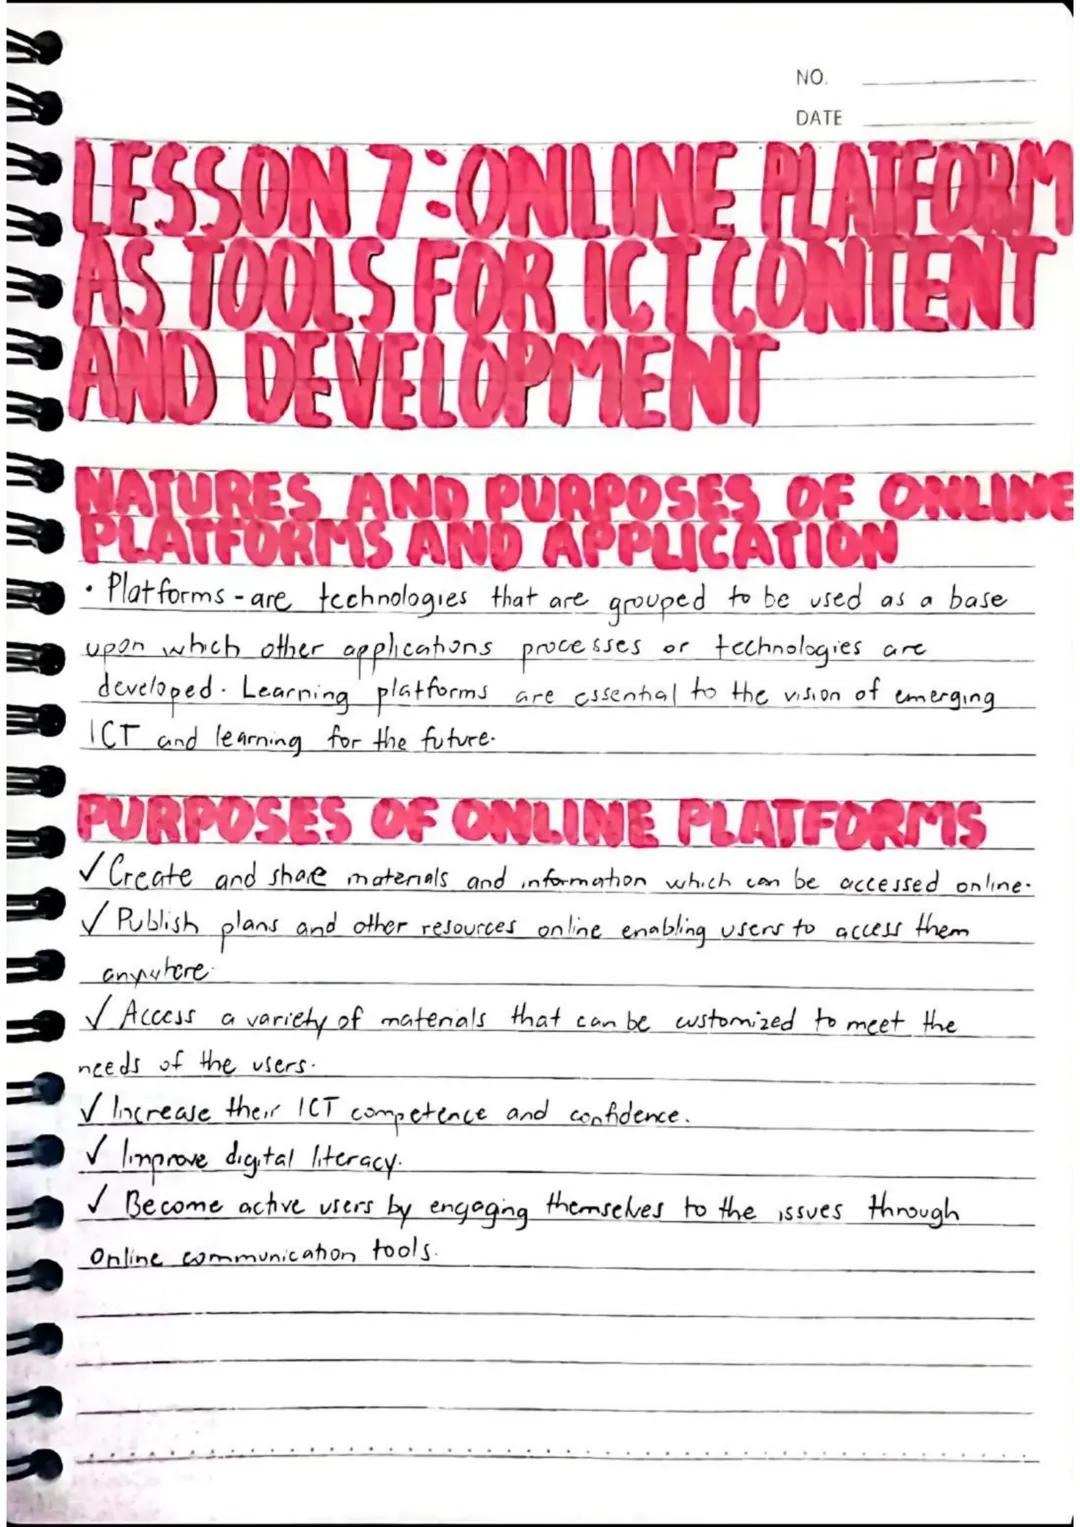 NO.
DATE
LESSON 7: ONLINE PLATFORM
AS TOOLS FOR ICT CONTENT
AND DEVELOPMENT
NATURES AND PURPOSES OF ONLINE
PLATFORMS AND APPLICATION
• Platforms - are technologies that are grouped to be used as a base
upon which other applications processes or technologies are
developed. Learning platforms are essential to the vision of emerging
ICT and learning for the future.
PURPOSES OF ONLINE PLATFORMS
✓ Create and share materials and information which can be accessed online.
✓ Publish plans and other resources online enabling users to access them
anywhere.
✓ Access a variety of materials that can be customized to meet the
needs of the users.
✓ Increase their ICT competence and confidence.
✓ Improve digital literacy.
✓ Become active users by engaging themselves to the issues through
online communication tools.